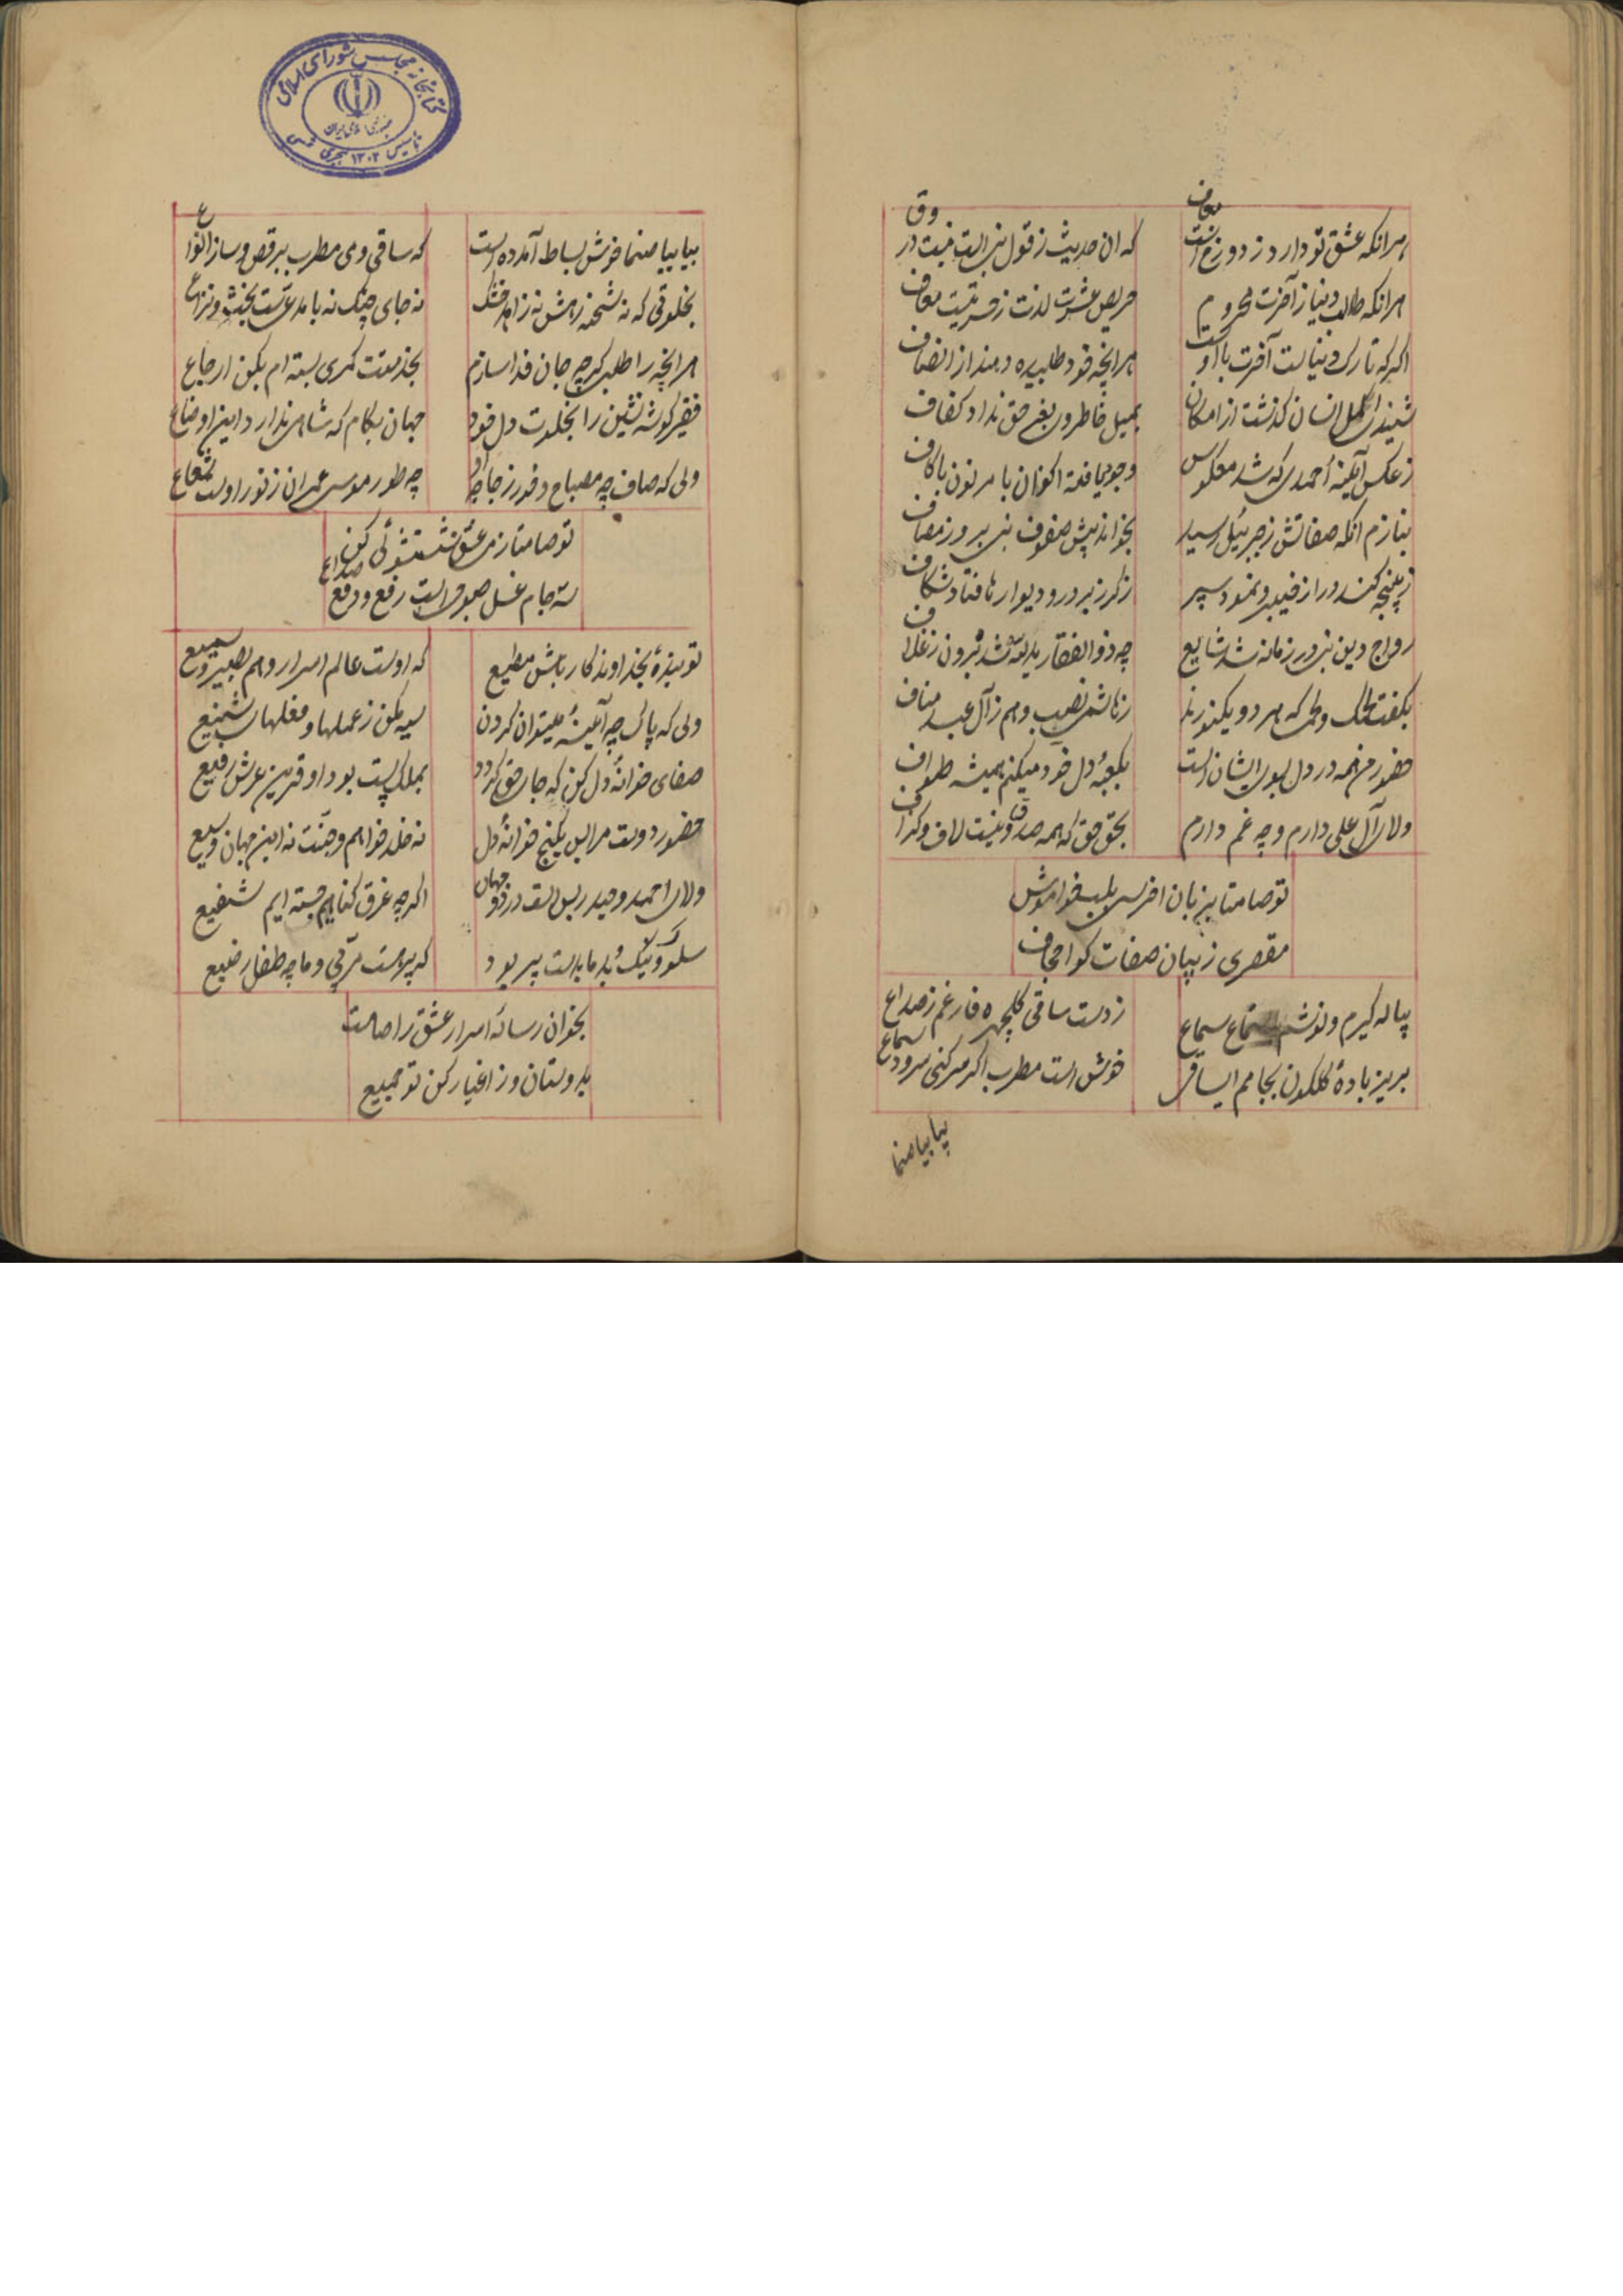 هر انکه عشق تو دارد ز دوزخ است معاف
که ان حدیث ز قول نبی است نیست در
هر انکه طالب دنیا ز آخرت محروم
حریص عشرت لذت ز
اگر که تارک دنیاست آخرت با او
هر انچه خود طلبیده دهند از انصاف
انسان گذشت از امکان
بمیل خاطر و بغیر حق نداد کفاف
ز عکس آینه احمدی که شد معکوس
بنازم انکه صفاتش ز جبرئیل رسید
بخواند پیش صفوف نبی بروز مصاف
ز پنجه کند در از خیبر و نمود سپر
ز در و دیوارها فتاد شکاف
رواج دین نبی در زمانه شد شایع
چه ذوالفقار شد برون ز غلاف
بگفت لحمک و لحمی که هر دو یکنورند
ز هاشمی نصیب و هم ز آل عبد مناف
حضور من همه در دل بسوی ایشان است
بکعبه دل خود میکنم همیشه طواف
ولای آل علی دارم و چه غم دارم
بحق حق که همه صدق و نیست لاف و گزاف
تو صامتا بزبان اخرسی بلب خواموش
مقصری ز بیان صفات کو اجحاف
پیاله گیرم و نوشم سماع سماع
ز دست ساقی گلچهره فارغم ز صداع
بریز باده گلگون بجامم ای ساقی
خوش است مطرب اگر سر کنی سرود سماع
بیا بیا صنما
بیا بیا صنما خوش بساط آمده است
که ساقی و می مطرب برقص و ساز
بخلوتی که نه شحنه رهش نه زاهد خشک
نه جای چنگ نه بحث و نزاع
هر انچه را طلبی گرچه جان فدا سازم
بخدمتت کمری بسته ام بکن ارجاع
فقیر گوشه نشین را بخلوت دل خود
جهان بکام که شاهی ندارد این اوضاع
ولی که صاف چه مصباح
چه طور موسی عمران ز نور اوست شعاع
تو صامتا ز می عشق شستشوئی کن
سه جام غسل صبوحی است رفع و دفع صداع
تو بنده بخداوندگار باش مطیع
که اوست عالم اسرار و هم بصیر و سمیع
ولی که پاک چه آیینه میتوان کردن
سیه مکن ز عملها و فعلهای شنیع
صفای خزانه دل کن که جای حق گردد
بملک پست بود او قرین عرش رفیع
حضور دوست مرا بس بکنج خزانه دل
نه خلد خواهم و جنت نه این جهان وسیع
ولای احمد و حیدر بس است در دو جهان
اگر چه غرق گناهیم جسته ایم شفیع
سلوک نیک و بد ما بدست پیر بود
که پیر هست مربی و ما چه طفل رضیع
بخوان رساله اسرار عشق را صامت
بدوستان و ز اغیار کن تو جمیع
کتابخانه مجلس شورای اسلامی
جمهوری اسلامی ایران
تاسیس ۱۳۰۲ هجری شمسی